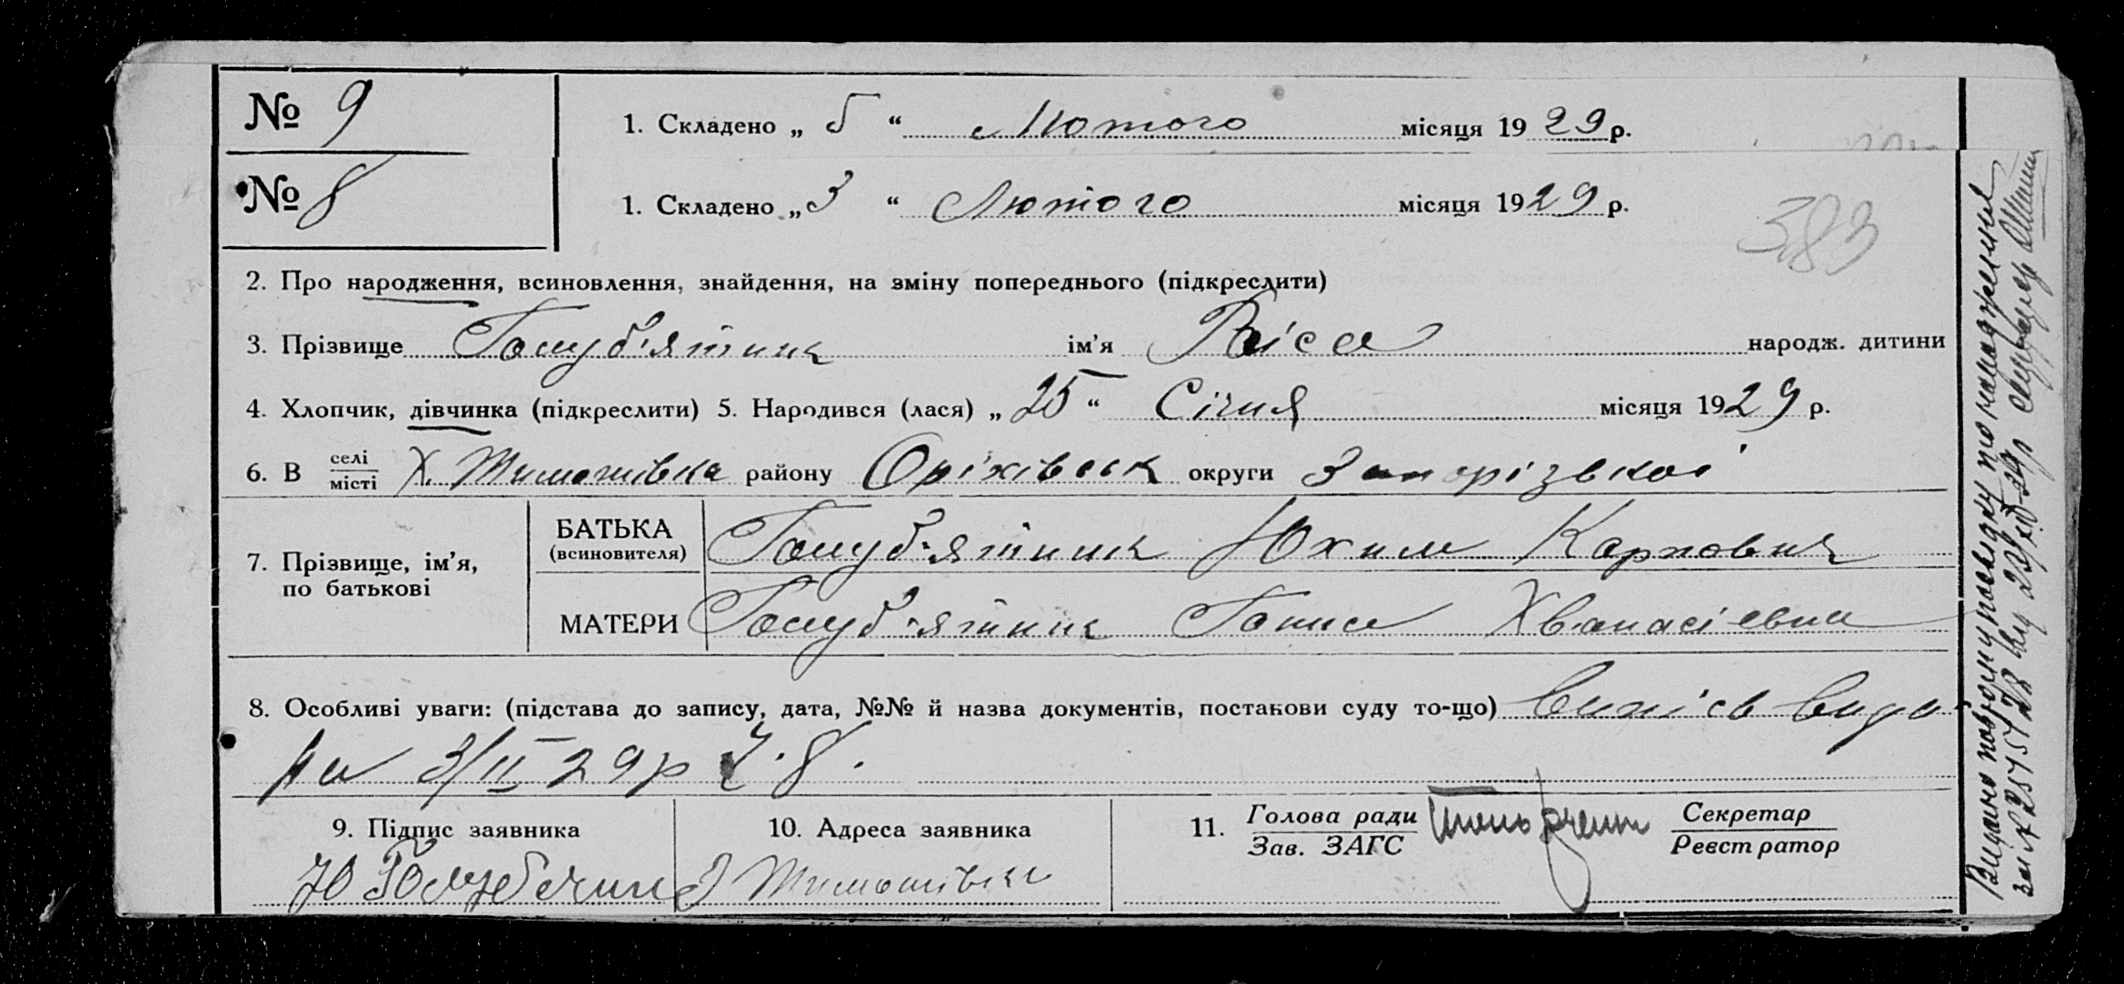 № 9
1. Складено „ 5 “ Лютого місяця 1929 р.
№ 8
1. Складено „ 3 “ Лютого місяця 1929 р.
383
2. Про народження, всиновлення, знайдення, на зміну попереднього (підкреслити)
3. Прізвище Голуб'ятник ім'я Раіса народж. дитини
4. Хлопчик, дівчинка (підкреслити) 5. Народився (лася) „ 25 “ Січня місяця 1929 р.
6. В селі/місті Х. Тимошівка району Оріхівськ округи Запорізькоі
7. Прізвище, ім'я, по батькові
БАТЬКА (всиновителя) Голуб'ятник Юхим Карпович
МАТЕРИ Голуб'ятник Ганна Хванасієвна
8. Особливі уваги: (підстава до запису, дата, №№ й назва документів, постанови суду то-що) Випісь вида
на 3/II 29р Ч. 8.
9. Підпис заявника
10. Адреса заявника
11. Голова ради / Зав. ЗАГС
Секретар / Реєстратор
Ю Голуб
Тимошівка
Видано повторну по народження